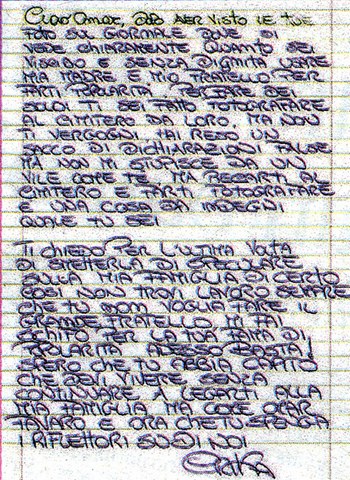 Ciao Omar, dopo aver visto le tue
foto sul giornale dove si
vede chiaramente quanto sei
viscido e senza dignità usare
mia madre e mio fratello per
farti popolarità per fare dei
soldi ti sei fatto fotografare
al cimitero da loro ma non
ti vergogni fai reso un
sacco di dichiarazioni false
ma non mi stupisce da un
vile come te ma recarti al
cimitero e farti fotografare
e una cosa da indegni
quale tu sei
Ti chiedo per l'ultima volta
di smetterla di speculare
sulla mia famiglia di certo
così non trovi lavoro sempre
che tu non voglia fare il
grande fratello mi fai
schifo per la tua fama di
popolarità adesso basta!
spero che tu abbia capito
che devi vivere senza
continuare a legarti alla
mia famiglia ma come Omar
Favaro e ora che tu spenga
i riflettori su di noi
Erika